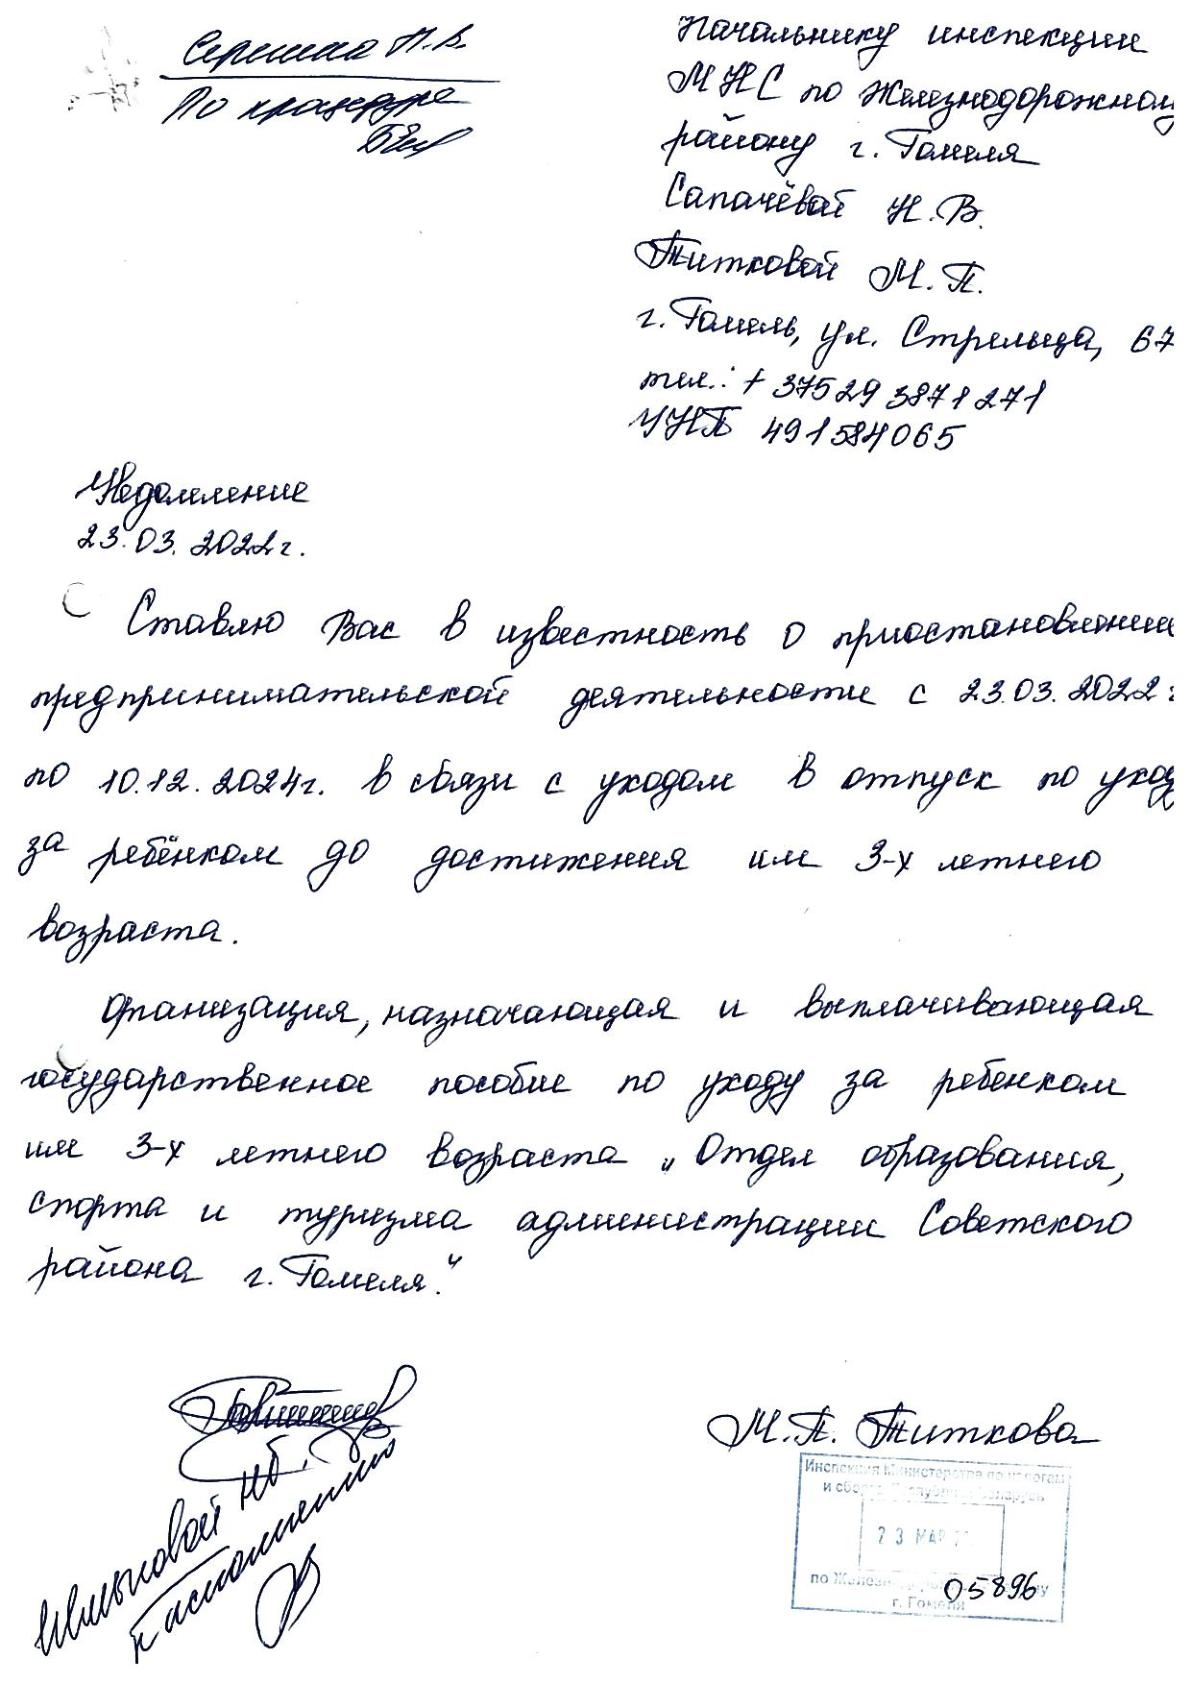 По процедуре
Начальнику инспекции
МНС по Железнодорожному
району г. Гомеля
Сапачёвой Н.В.
Титковой М.П.
г. Гомель, ул. Стрельца, 67
тел.: + 375 29 3871271
УНП 491584065
Уведомление
23.03.2022г.
Ставлю Вас в известность о приостановлении
предпринимательской деятельности с 23.03.2022г
по 10.12.2024г. в связи с уходом в отпуск по уходу
за ребёнком до достижения им 3-х летнего
возраста.
Организация, назначающая и выплачивающая
государственное пособие по уходу за ребенком
им 3-х летнего возраста „Отдел образования,
спорта и туризма администрации Советского
района г. Гомеля."
к исполнению
М.П. Титкова
Инспекция Министерства по налогам
и сборам Республики Беларусь
23 МАР
по Железнодорожному району
05896
г. Гомеля